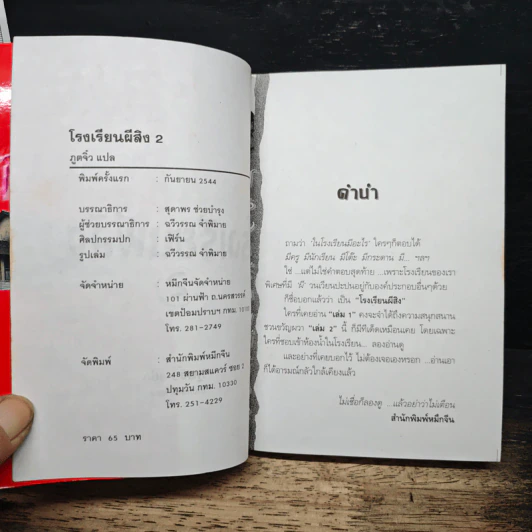 โรงเรียนผีสิง 2
ภูตจิ๋ว แปล
พิมพ์ครั้งแรก : กันยายน 2544
บรรณาธิการ : สุดาพร ช่วยบำรุง
ผู้ช่วยบรรณาธิการ : ฉวีวรรณ จำพิมาย
ศิลปกรรมปก : เฟิร์น
รูปเล่ม : ฉวีวรรณ จำพิมาย
จัดจำหน่าย : หมึกจีนจัดจำหน่าย
101 ผ่านฟ้า ถ.นครสวรรค์
เขตป้อมปราบฯ กทม.
โทร. 281-2749
จัดพิมพ์ : สำนักพิมพ์หมึกจีน
248 สยามสแควร์ ซอย
ปทุมวัน กทม. 10330
โทร. 251-4229
ราคา 65 บาท
คำนำ
ถามว่า 'ในโรงเรียนมีอะไร' ใครๆก็ตอบได้
มีครู มีนักเรียน มีโต๊ะ มีกระดาน มี... ฯลฯ
ใช่ ...แต่ไม่ใช่คำตอบสุดท้าย ...เพราะโรงเรียนของเรา
พิเศษที่มี 'ผี' วนเวียนปะปนอยู่กับองค์ประกอบอื่นๆด้วย
ก็ชื่อบอกแล้วว่า เป็น "โรงเรียนผีสิง"
ใครที่เคยอ่าน "เล่ม 1" คงจะจำได้ถึงความสนุกสนาน
ชวนขวัญผวา "เล่ม 2" นี้ ก็มีทีเด็ดเหมือนเคย โดยเฉพาะ
ใครที่ชอบเข้าห้องน้ำในโรงเรียน... ลองอ่านดู
และอย่างที่เคยบอกไว้ ไม่ต้องเจอเองหรอก ...อ่านเอา
ก็ได้อารมณ์กลัวใกล้เคียงแล้ว
ไม่เชื่อก็ลองดู ...แล้วอย่าว่าไม่เตือน
สำนักพิมพ์หมึกจีน